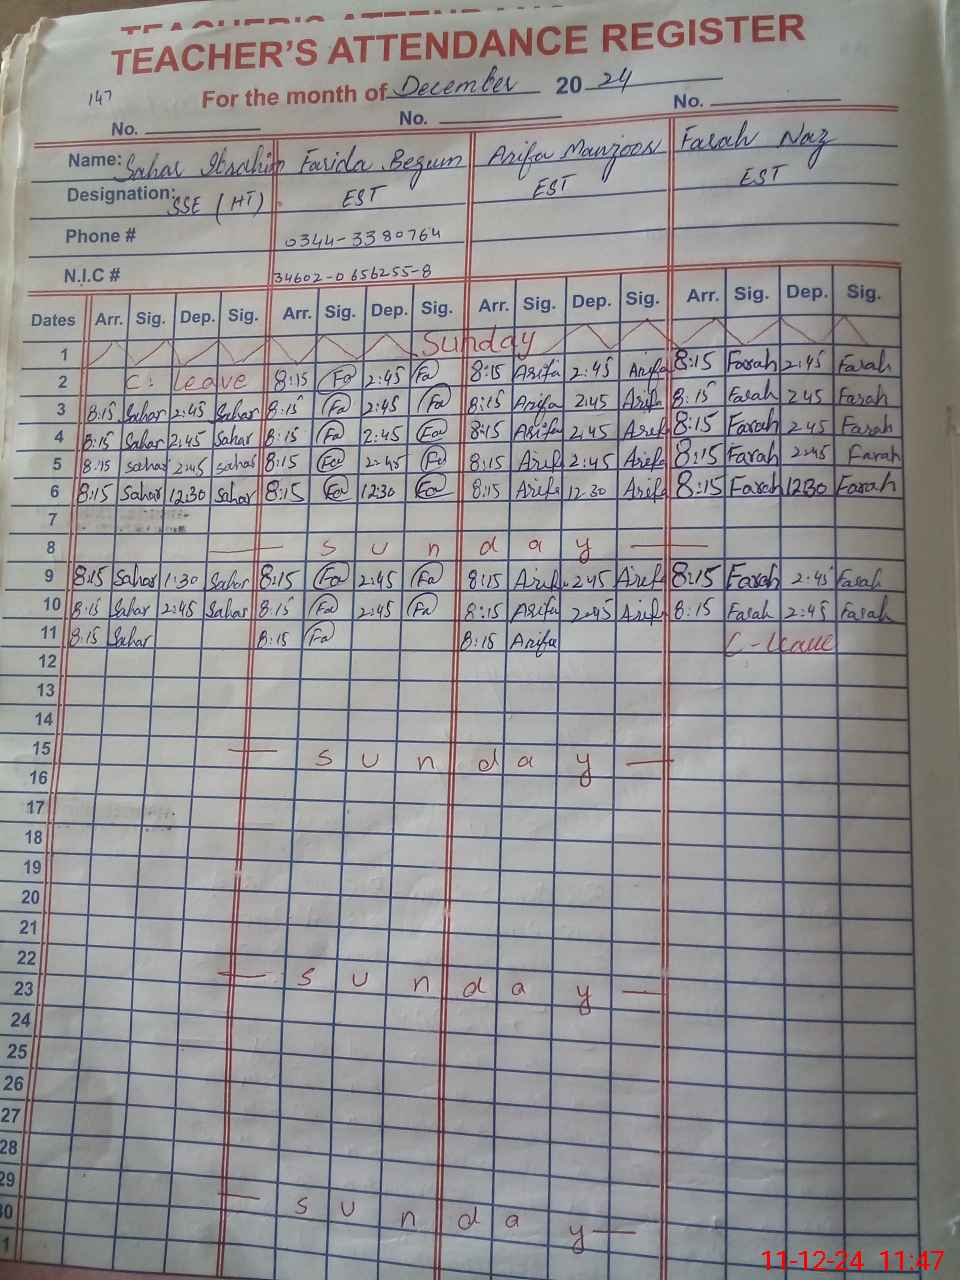 TEACHER'S ATTENDANCE REGISTER
147 For the month of December 2024
No. No. No.
Name: Sahar Ibrahim Farida Begum Arifa Manzoor Farah Naz
Designation: SSE (HT) EST EST EST
Phone # 0344-3380764
N.I.C # 34602-0656255-8
Dates Arr. Sig. Dep. Sig. Arr. Sig. Dep. Sig. Arr. Sig. Dep. Sig. Arr. Sig. Dep. Sig.
1 Sunday
2 C. Leave 8:15 Fa 2:45 Fa 8:15 Arifa 2:45 Arifa 8:15 Farah 2:45 Farah
3 8:15 Sahar 2:45 Sahar 8:15 Fa 2:45 Fa 8:15 Arifa 2:45 Arifa 8:15 Farah 2 45 Farah
4 8:15 Sahar 2:45 Sahar 8:15 Fa 2:45 Fa 8:15 Arifa 2:45 Arifa 8:15 Farah 2 45 Farah
5 8:15 Sahar 2:45 Sahar 8:15 Fa 2:45 Fa 8:15 Arifa 2:45 Arifa 8:15 Farah 2:45 Farah
6 8:15 Sahar 12:30 Sahar 8:15 Fa 12:30 Fa 8:15 Arifa 12.30 Arifa 8:15 Farah 1230 Farah
7
8 Sunday
9 8:15 Sahar 1:30 Sahar 8:15 Fa 2:45 Fa 8:15 Arifa 2:45 Arifa 8:15 Farah 2:45 Farah
10 8:15 Sahar 2:45 Sahar 8:15 Fa 2:45 Fa 8:15 Arifa 2:45 Arifa 8:15 Farah 2:45 Farah
11 8:15 Sahar 8:15 Fa 8:15 Arifa C-leave
12
13
14
15 Sunday
16
17
18
19
20
21
22
23 Sunday
24
25
26
27
28
29
30 Sunday
1
11-12-24 11:47